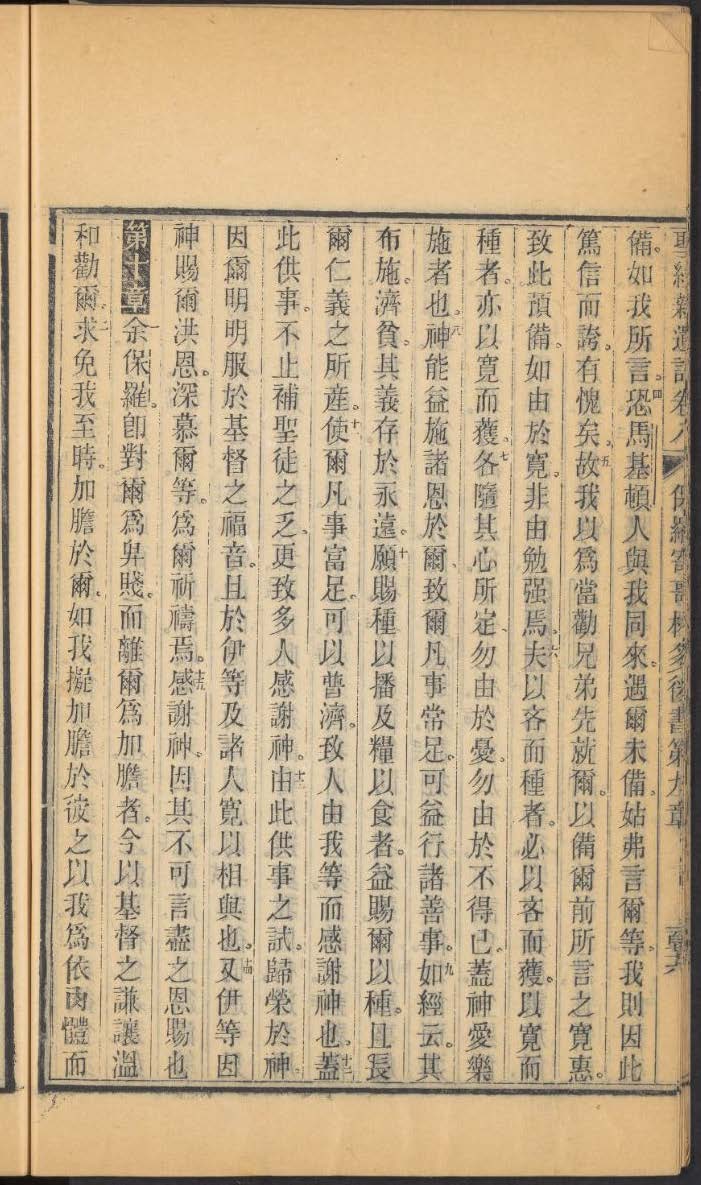 聖經新遺詔卷八 保羅寄哥林多後書第九章
備。如我所言。四恐馬基頓人與我同來。遇爾未備。姑弗言爾等。我則因此
篤信而誇。有愧矣。五故我以爲當勸兄弟先就爾。以備爾前所言之寬惠。
致此預備。如由於寬。非由勉强焉。六夫以吝而種者。必以吝而獲。以寬而
種者。亦以寬而獲。七各隨其心所定、勿由於憂。勿由於不得已。蓋神愛樂
施者也。八神能益施諸恩於爾、致爾凡事常足。可益行諸善事。九如經云。其
布施。濟貧。其義存於永遠。十願賜種以播及糧以食者。益賜爾以種。且長
爾仁義之所產。十一使爾凡事富足。可以普濟。致人由我等而感謝神也。十二蓋
此供事。不止補聖徒之乏。更致多人感謝神。十三由此供事之試。歸榮於神。
因爾明明服於基督之福音。且於伊等及諸人寬以相與也。十四又伊等因
神賜爾洪恩。深慕爾等。爲爾祈禱焉。十五感謝神。因其不可言盡之恩賜也
第十章一余保羅。卽對爾爲卑賤。而離爾爲加膽者。今以基督之謙讓溫
和勸爾。二求免我至時。加膽於爾。如我擬加膽於彼之以我爲依肉體而